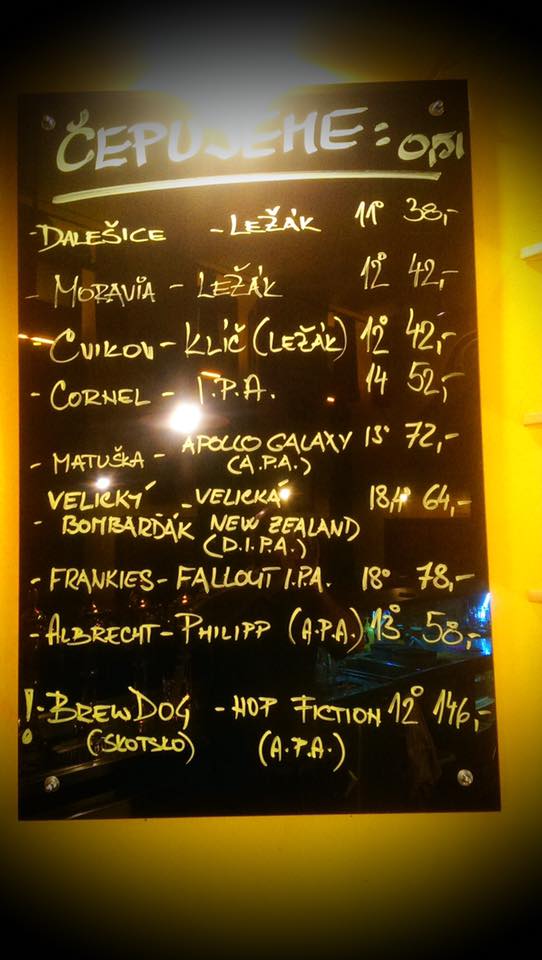 ČEPUJEME: 0,5l
- DALEŠICE - LEŽÁK 11° 38,-
- MORAVIA - LEŽÁK 12° 42,-
- CVIKOV - KLÍČ (LEŽÁK) 12° 42,-
- CORNEL - I.P.A. 14 52,-
- MATUŠKA - APOLLO GALAXY 13° 72,-
(A.P.A.)
VELICKÝ - VELICKÁ 18,4° 64,-
- BOMBARĎÁK NEW ZEALAND
(D.I.P.A.)
- FRANKIES - FALLOUT I.P.A. 18° 78,-
- ALBRECHT - PHILIPP (A.P.A.) 13° 58,-
! - BREWDOG - HOP FICTION 12° 146,-
(SKOTSKO) (A.P.A.)